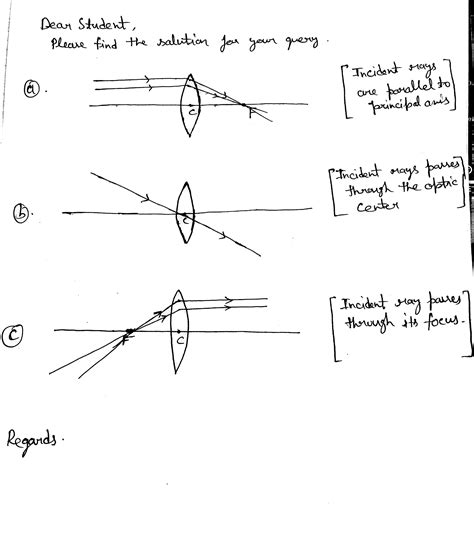 Dear Student,
Please find the solution for your query.
(a).
C
F
[Incident rays
are parallel to
principal axis]
(b).
C
[Incident rays passes
through the optic
center]
(c)
F
C
[Incident ray passes
through its focus.]
Regards.